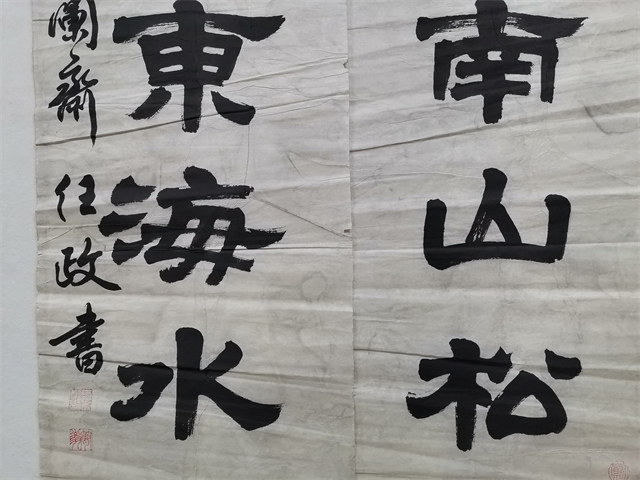 南山松
東海水
蘭齋任政書